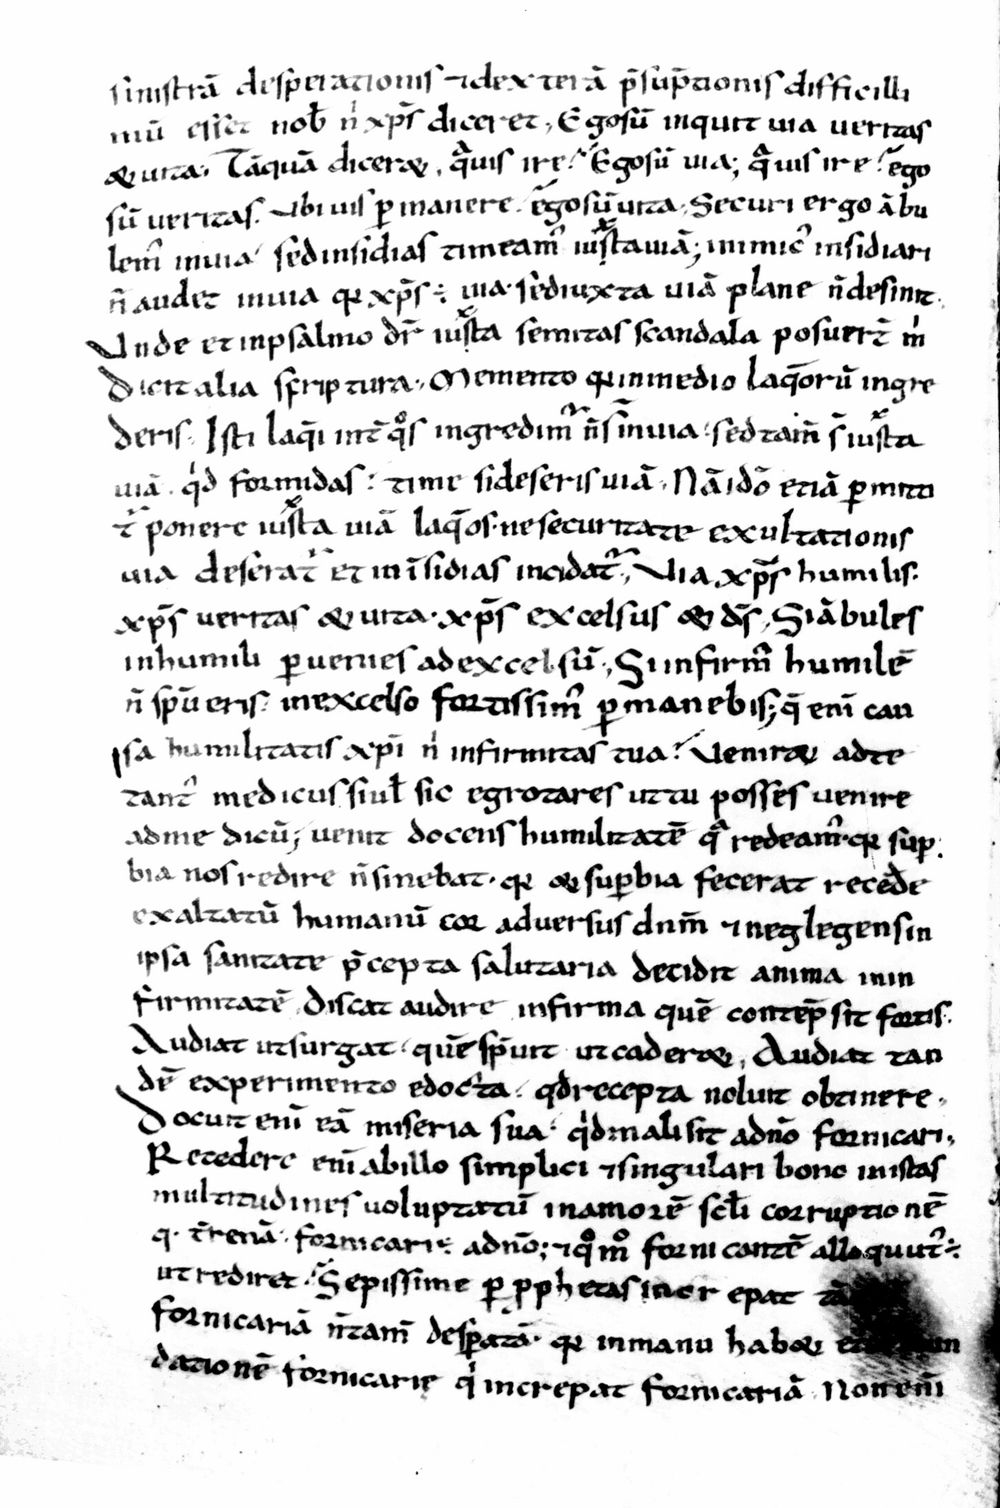 sinistrā desperationis ⁊dexterā p̄sūptionis difficilli
mū esset nob̄ n̄ xp̄s diceret, Egosū inquit uia ueritas
&uita. Tāquā dicer&, quis ire? Egosū uia; quis ire? ego
sū ueritas. Vbi uis ꝑmanere. egosū uita. Securi ergo ābu
lem̄ inuia sedinsidias timeam̄ iuxtauiā; inimic̄ insidiari
n̄ audet inuia qꝛ xp̄s ÷ uia. sediuxta uiā plane n̄ desinit.
Vnde et inpsalmo dr̄ iuxta semitas scandala posuer̄ m̄
Dicit alia scriptura. Memento qꝛ inmedio laqeorū ingre
deris. Isti laqi int̄ qos ingredim̄ n̄ s̄ inuia. sed tam̄ s̄ iuxta
uiā. qid formidas? time sideseris uiā. Nā idō etiā ꝑmitti
t̄ ponere iuxta uiā laqeos. nesecuritate exultationis
uia deserat̄ et in īsidias incidat̄. Via xp̄s humilis.
xp̄s ueritas &uita. xp̄s excelsus & ds̄, Siābules
inhumili ꝑuenies adexcelsū. Si infirm̄ humilē
n̄ sp̄ueris. inexcelso fortissim̄ ꝑmanebis; q̄ enī cau
sa humilitatis xpī n̄ infirmitas tua? Venir& adte
tant̄ medicus siul̄ sic egrotares uttu posses uenire
adme dicū; uenit docens humilitatē qa redeam̄. qꝛ suꝑ
bia nos redire n̄sinebat. qꝛ & suꝑbia fecerat recedere
exaltatū humanū cor aduersus dnm̄ ⁊neglegensin
ipsa sanitate p̄cepta salutaria decidit anima inin
firmitatē Discat audire infirma quē contēp̄sit fortis.
Audiat utsurgat. quē sp̄uit utcader&, Audiat tan
dē experimento edocta. qd̄ recepta noluit obtinere.
Docuit enī eā miseria sua. qid malisit adnō fornicari,
Recedere enī abillo simplici ⁊singulari bono inistas
multitudines uoluptatū inamorē scl̄i corruptionē
q. t̄renā. fornicari ÷ adnō; ⁊ qom̄o fornicantē alloquut̄ ÷
utrediret. Sepissime ꝑ pphetas increpat tā
fornicariā n̄tam̄ desꝑatā. qꝛ inmanu hab&
dationē fornicarie qi increpat fornicariā. Non enī